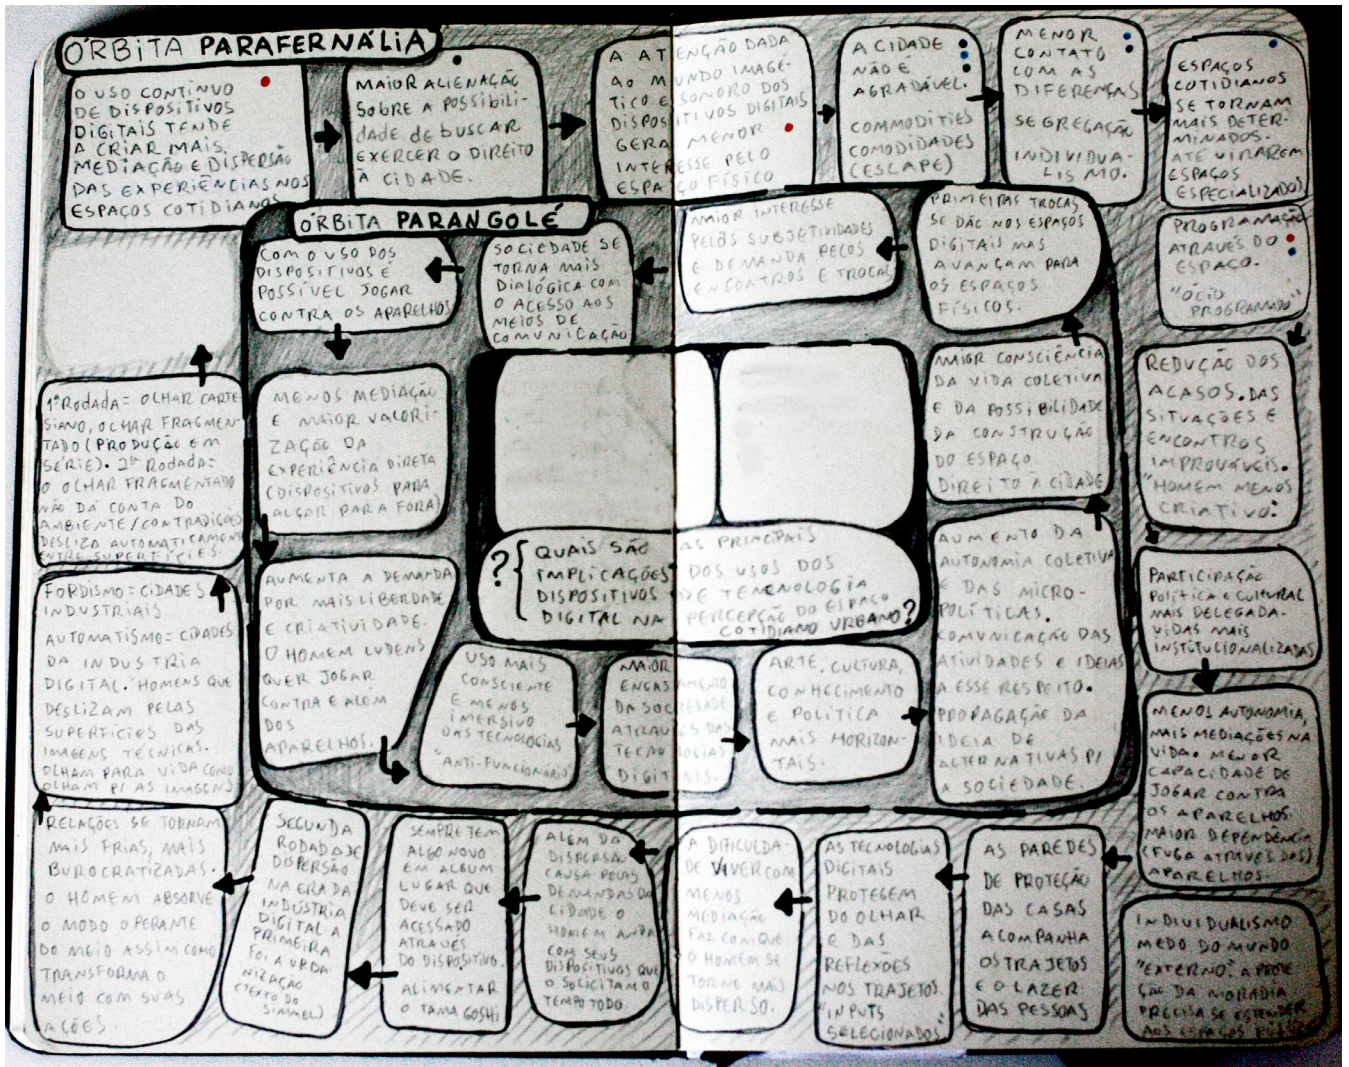 ÓRBITA PARAFERNÁLIA
O USO CONTÍNUO
DE DISPOSITIVOS
DIGITAIS TENDE
A CRIAR MAIS
MEDIAÇÃO E DISPERSÃO
DAS EXPERIÊNCIAS NOS
ESPAÇOS COTIDIANOS
MAIOR ALIENAÇÃO
SOBRE A POSSIBILI-
DADE DE BUSCAR
EXERCER O DIREITO
À CIDADE.
A ATENÇÃO DADA
AO MUNDO IMAGÉ-
TICO E SONORO DOS
DISPOSITIVOS DIGITAIS
GERA MENOR
INTERESSE PELO
ESPAÇO FÍSICO
A CIDADE
NÃO É
AGRADÁVEL.
COMMODITIES
COMODIDADES
(ESCAPE)
MENOR
CONTATO
COM AS
DIFERENÇAS
SEGREGAÇÃO
INDIVIDUA-
LISMO.
ESPAÇOS
COTIDIANOS
SE TORNAM
MAIS DETER-
MINADOS.
ATÉ VIRAREM
ESPAÇOS
ESPECIALIZADOS
PROGRAMAÇÃO
ATRAVÉS DO
ESPAÇO.
"ÓCIO
PROGRAMADO"
REDUÇÃO DOS
ACASOS, DAS
SITUAÇÕES E
ENCONTROS
IMPROVÁVEIS.
"HOMEM MENOS
CRIATIVO".
PARTICIPAÇÃO
POLÍTICA E CULTURAL
MAIS DELEGADA.
VIDAS MAIS
INSTITUCIONALIZADAS
MENOS AUTONOMIA,
MAIS MEDIAÇÕES NA
VIDA. MENOR
CAPACIDADE DE
JOGAR CONTRA
OS APARELHOS.
MAIOR DEPENDÊNCIA
(FUGA ATRAVÉS DAS)
APARELHOS.
INDIVIDUALISMO
MEDO DO MUNDO
"EXTERNO". A PROTE
ÇÃO DA MORADIA
PRECISA SE ESTENDER
AOS ESPAÇOS
AS PAREDES
DE PROTEÇÃO
DAS CASAS
ACOMPANHA
OS TRAJETOS
E O LAZER
DAS PESSOAS
AS TECNOLOGIAS
DIGITAIS
PROTEGEM
DO OLHAR
E DAS
REFLEXÕES
NOS TRAJETOS.
"INPUTS
SELECIONADOS"
A DIFICULDA-
DE VIVER COM
MENOS
MEDIAÇÃO
FAZ COM QUE
O HOMEM SE
TORNE MAIS
DISPERSO.
ALÉM DA
DISPERSÃO
CAUSA PELAS
DEMANDAS DA
CIDADE O
HOMEM ANDA
COM SEUS
DISPOSITIVOS QUE
O SOLICITAM O
TEMPO TODO.
SEMPRE TEM
ALGO NOVO
EM ALGUM
LUGAR QUE
DEVE SER
ACESSADO
ATRAVÉS
DO DISPOSITIVO.
ALIMENTAR
O TAMAGOSHI
SEGUNDA
RODADA DE
DISPERSÃO
NA ERA DA
INDÚSTRIA
DIGITAL A
PRIMEIRA
FOI A URBA
NIZAÇÃO
(TEXTO DO
SIMMEL)
RELAÇÕES SE TORNAM
MAIS FRIAS, MAIS
BUROCRATIZADAS.
O HOMEM ABSORVE
O MODO OPERANTE
DO MEIO ASSIM COMO
TRANSFORMA O
MEIO COM SUAS
AÇÕES.
FORDISMO = CIDADES
INDUSTRIAIS
AUTOMATISMO = CIDADES
DA INDUSTRIA
DIGITAL. HOMENS QUE
DESLIZAM PELAS
SUPERFÍCIES DAS
IMAGENS TÉCNICAS.
OLHAM PARA VIDA COMO
OLHAM P/ AS IMAGENS
1ª RODADA = OLHAR CARTE
SIANO, OLHAR FRAGMEN-
TADO (PRODUÇÃO EM
SÉRIE). 2ª RODADA=
O OLHAR FRAGMENTADO
NÃO DÁ CONTA DO
AMBIENTE/CONTRADIÇÕES
DESLIZA AUTOMATICAMENTE
ENTRE SUPERFÍCIES.
ÓRBITA PARANGOLÉ
COM O USO DOS
DISPOSITIVOS É
POSSÍVEL JOGAR
CONTRA OS APARELHOS
MENOS MEDIAÇÃO
E MAIOR VALORI-
ZAÇÃO DA
EXPERIÊNCIA DIRETA
(DISPOSITIVOS PARA
ALÇAR PARA FORA)
AUMENTA A DEMANDA
POR MAIS LIBERDADE
E CRIATIVIDADE.
O HOMEM LUDENS
QUER JOGAR
CONTRA E ALÉM
DOS
APARELHOS.
USO MAIS
CONSCIENTE
E MENOS
IMERSIVO
DAS TECNOLOGIAS
"ANTI-FUNCIONÁRIO"
MAIOR
ENGAJAMENTO
DA SOCIEDADE
ATRAVÉS DAS
TECNOLOGIAS
DIGITAIS.
ARTE, CULTURA,
CONHECIMENTO
E POLÍTICA
MAIS HORIZON-
TAIS.
AUMENTO DA
AUTONOMIA COLETIVA
E DAS MICRO-
POLÍTICAS.
COMUNICAÇÃO DAS
ATIVIDADES E IDEIAS
A ESSE RESPEITO.
PROPAGAÇÃO DA
IDEIA DE
ALTERNATIVAS P/
A SOCIEDADE.
MAIOR CONSCIÊNCIA
DA VIDA COLETIVA
E DA POSSIBILIDADE
DA CONSTRUÇÃO
DO ESPAÇO
DIREITO À CIDADE
PRIMEIRAS TROCAS
SE DÃO NOS ESPAÇOS
DIGITAIS MAS
AVANÇAM PARA
OS ESPAÇOS
FÍSICOS.
MAIOR INTERESSE
PELAS SUBJETIVIDADES
E DEMANDA PELOS
ENCONTROS E TROCAS
SOCIEDADE SE
TORNA MAIS
DIALÓGICA COM
O ACESSO AOS
MEIOS DE
COMUNICAÇÃO
? { QUAIS SÃO AS PRINCIPAIS
IMPLICAÇÕES DOS USOS DOS
DISPOSITIVOS DE TECNOLOGIA
DIGITAL NA PERCEPÇÃO DO ESPAÇO
COTIDIANO URBANO?